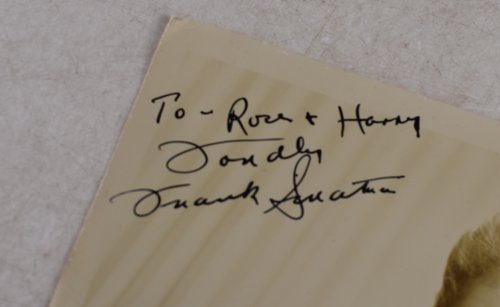 To - Rose + Harry
Fondly
Frank Sinatra